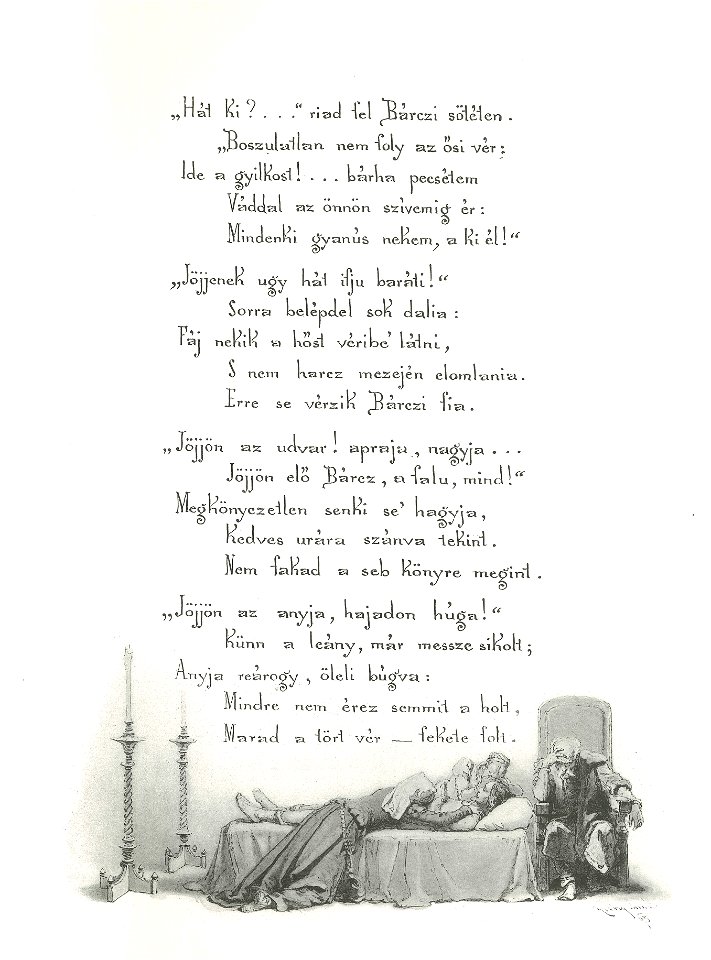 „Hát ki?...“ riad fel Bárczi sötéten.
„Boszulatlan nem foly az ősi vér;
Ide a gyilkost!... bárha pecsétem
Váddal az önnön szívemig ér:
Mindenki gyanús nekem, a ki él!“
„Jöjjenek ugy hát ifju baráti!“
Sorra belépdel sok dalia:
Fáj nekik a hőst véribe' látni,
S nem harcz mezején elomlania.
Erre se vérzik Bárczi fia.
„Jöjjön az udvar! apraja, nagyja...
Jöjjön elő Bárcz, a falu, mind!“
Megkönyezetlen senki se' hagyja,
Kedves urára szánva tekint.
Nem fakad a seb könyre megint.
„Jöjjön az anyja, hajadon húga!“
Künn a leány, már messze sikolt;
Anyja reárogy, öleli búgva:
Mindre nem érez semmit a holt,
Marad a tört vér — fekete folt.